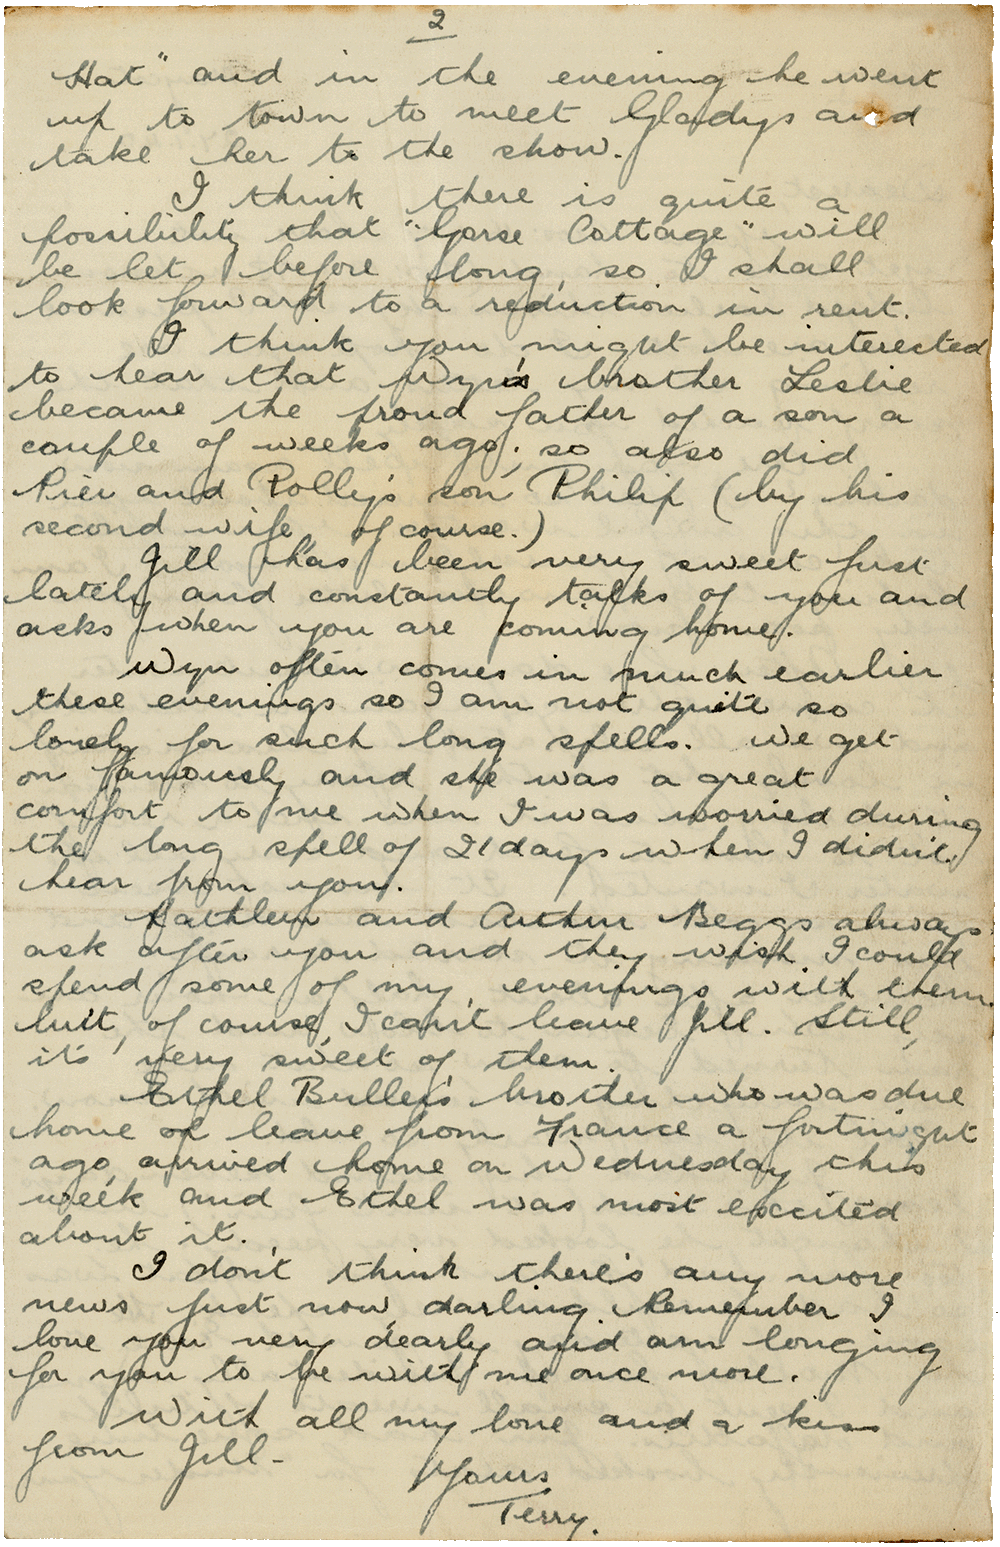 2
Hat" and in the evening he went
up to town to meet Gladys and
take her to the show.
I think there is quite a
possibility that "Gorse Cottage" will
be let before long, so I shall
look forward to a reduction in rent.
I think you might be interected
to hear that Wyn's brother Leslie
became the proud father of a son a
couple of weeks ago; so also did
Rier and Polly's son Philip (by his
second wife, of course.)
Jill has been very sweet just
lately and constantly talks of you and
asks when you are coming home.
Wyn often comes in much earlier
these evenings so I am not quite so
lonely for such long spells. We get
on famously and she was a great
comfort to me when I was worried during
the long spell of 21 days when I didn't
hear from you.
Kathleen and Arthur Beggs always
ask after you and they wish I could
spend some of my evenings with them.
but, of course, I can't leave Jill. Still,
it's very sweet of them.
Ethel Buller's brother who was due
home on leave from France a fortnight
ago, arrived home on Wednesday this
week and Ethel was most excited
about it.
I don't think there's any more
news just now darling. Remember I
love you very dearly and am longing
for you to be with me once more.
With all my love and a kiss
from Jill -
Yours
Terry.